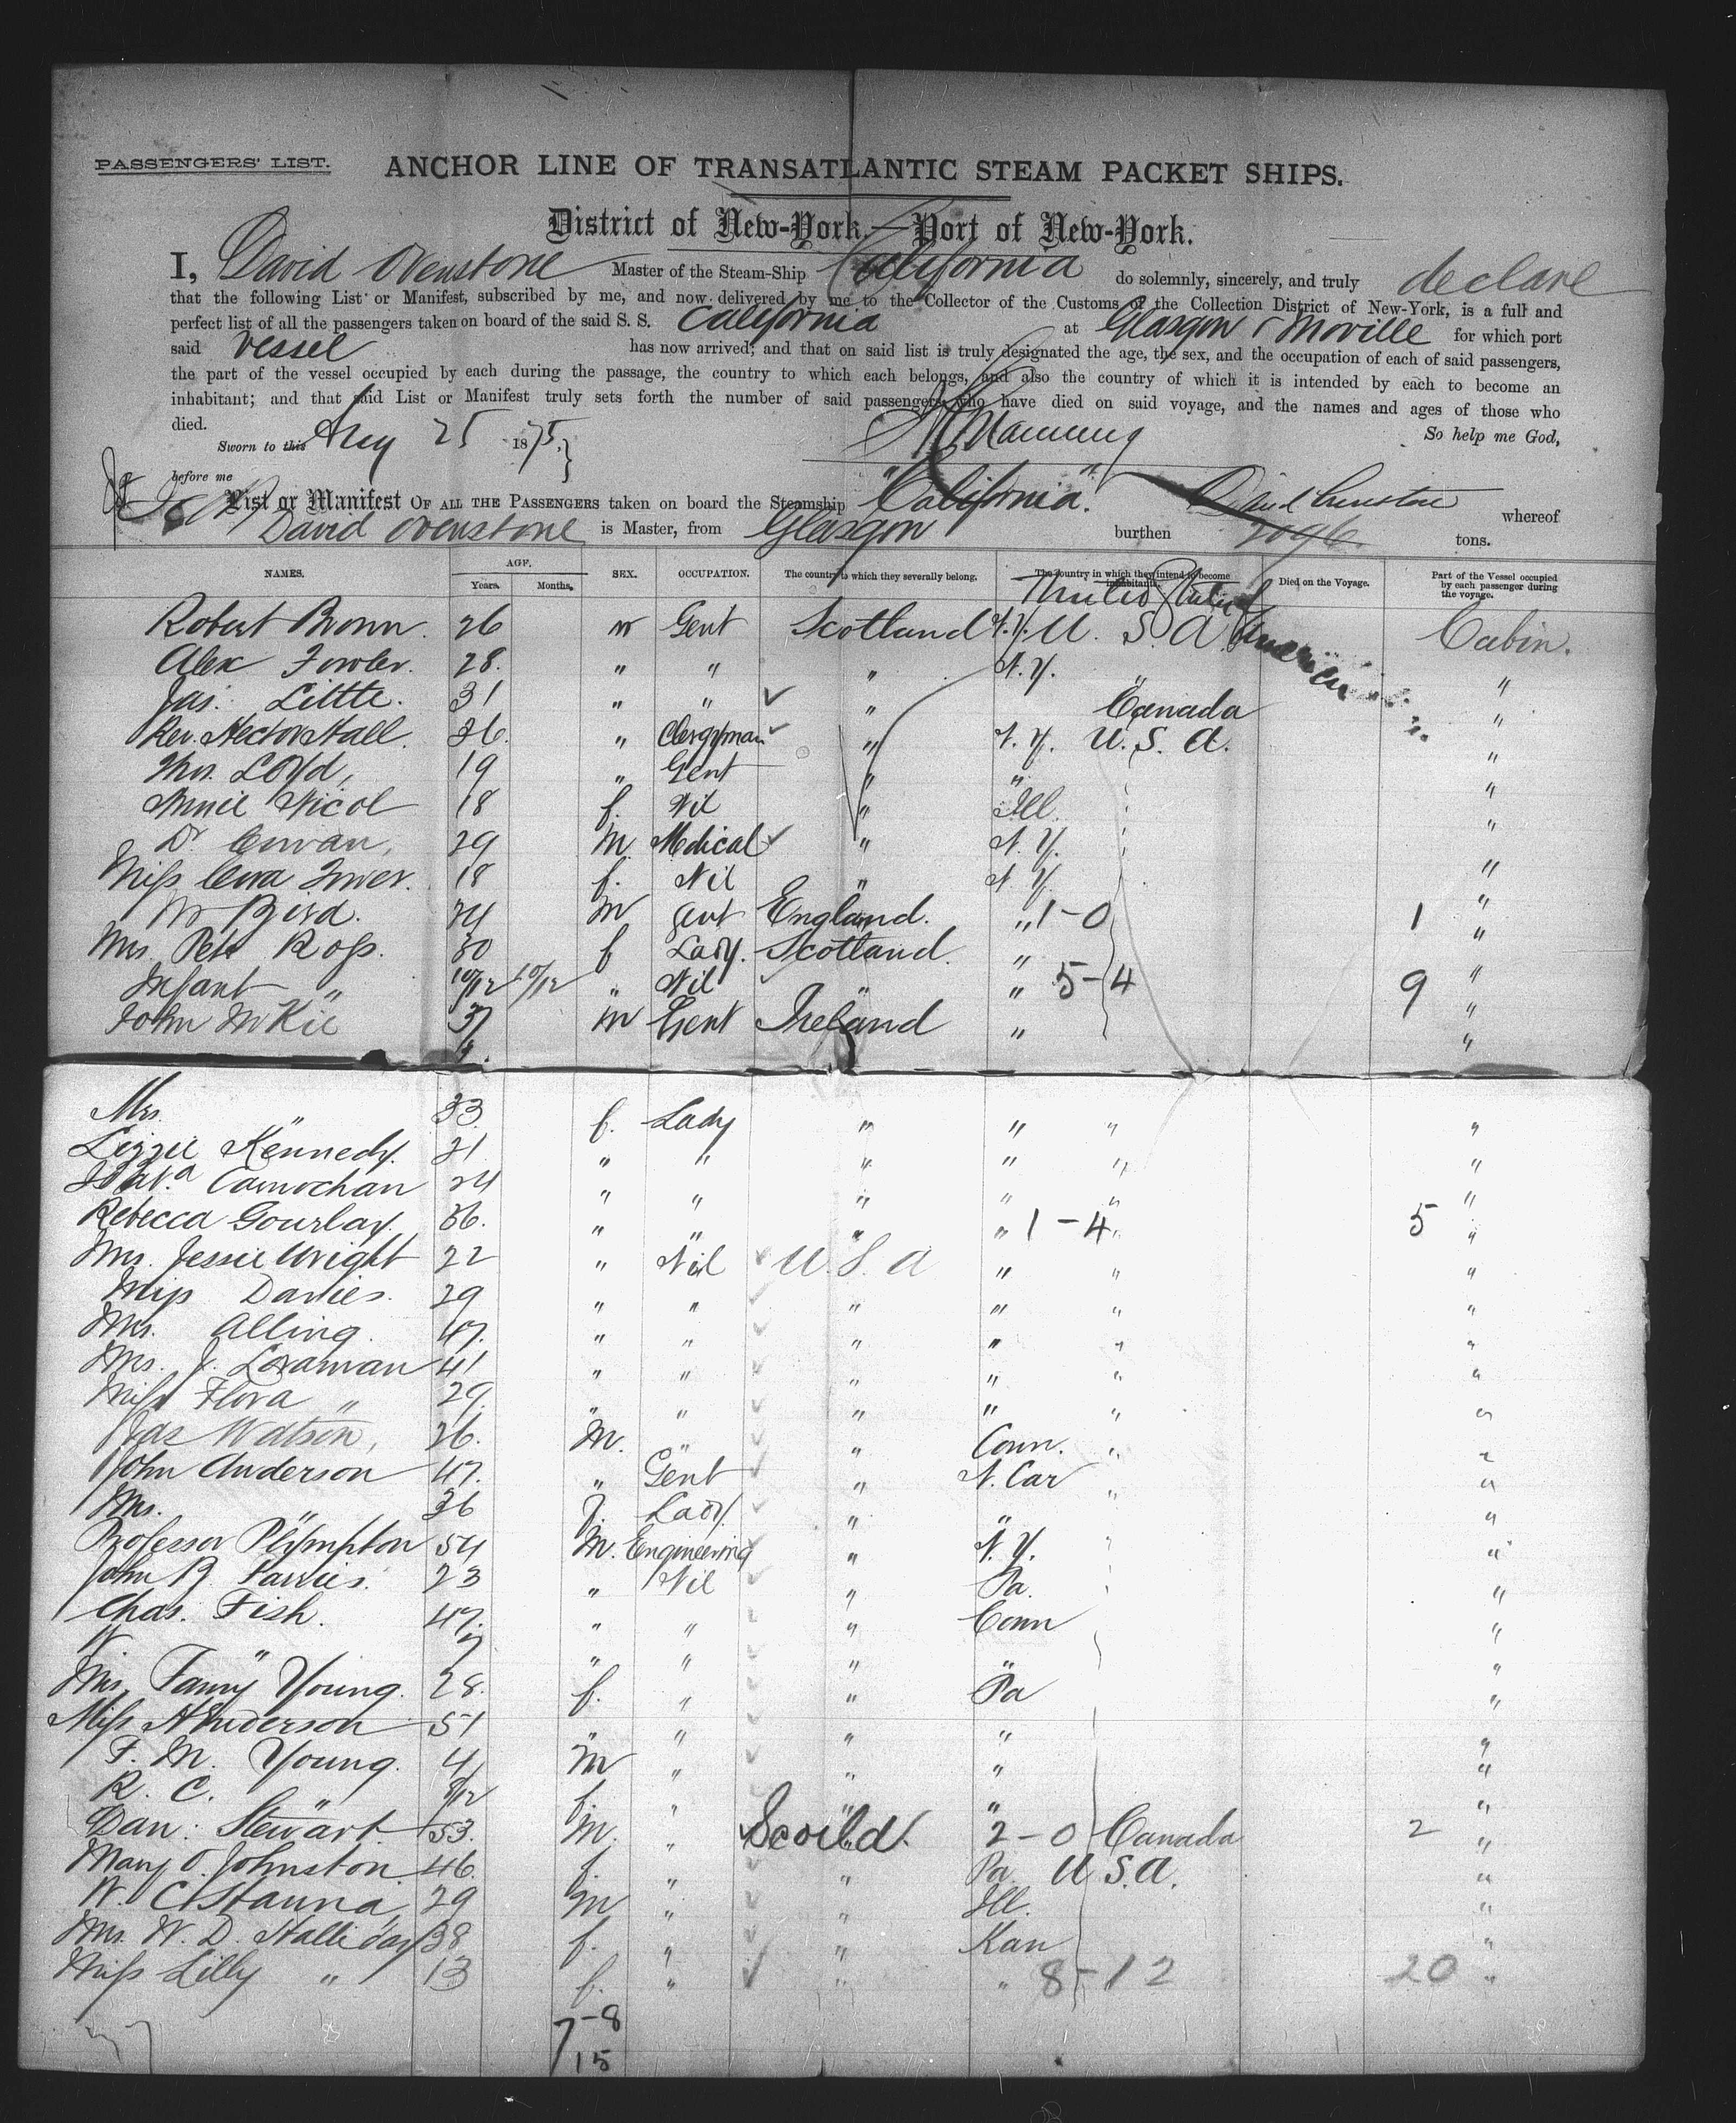 PASSENGERS' LIST. ANCHOR LINE OF TRANSATLANTIC STEAM PACKET SHIPS.
District of New-York.—Port of New-York.
I, David Ovenstone Master of the Steam-Ship California do solemnly, sincerely, and truly declare
that the following List or Manifest, subscribed by me, and now delivered by me to the Collector of the Customs of the Collection District of New-York, is a full and
perfect list of all the passengers taken on board of the said S. S. California at Glasgow & Moville for which port
said Vessel has now arrived; and that on said list is truly designated the age, the sex, and the occupation of each of said passengers,
the part of the vessel occupied by each during the passage, the country to which each belongs, and also the country of which it is intended by each to become an
inhabitant; and that said List or Manifest truly sets forth the number of said passengers who have died on said voyage, and the names and ages of those who
died. So help me God,
Sworn to this Aug 25 1875.
before me
List or Manifest OF ALL THE PASSENGERS taken on board the Steamship "California" whereof
David Ovenstone is Master, from Glasgow burthen 2096 tons.
NAMES. AGE. Years. Months. SEX. OCCUPATION. The country to which they severally belong. The country in which they intend to become inhabitants. Died on the Voyage. Part of the Vessel occupied by each passenger during the voyage.
United States America
Robert Brown. 26 m Gent Scotland N.Y. U. S. A Cabin.
Alex Fowler. 28. " " " N.Y. " "
Jas. Little. 31 " " " Canada "
Rev. Hector Hall. 36. " Clergyman " N.Y. U. S. A. "
Lloyd, 19 " Gent " " "
Annie Nicol 18 f. Nil " Ill. "
Dr 29 M Medical " N.Y. "
Miss 18 f. Nil " N.Y. "
Bird. 24 M Gent England. " 1-0 1 "
Mrs. Ross. 30 f Lady. Scotland. " "
Infant " 10/12 10/12 " Nil " " 5-4 9 "
John McKie 37 M Gent Ireland " "
Mrs. " 33 f. Lady " " " "
Lizzie Kennedy. 21 " " " " " "
Carnochan 24 " " " " " "
Rebecca Gourlay. 36. " " " " 1-4 " 5 "
Mrs. Jessie Wright 22 " Nil U. S. A " " "
Miss Davies. 29 " " " " " "
Mrs. Alling. 47. " " " " " "
Mrs. J. 41 " " " " " "
Miss Flora " 29. " " " " " "
Jas Watson, 26. M. " " Conn. " "
John Anderson 47. " Gent " N. Car " "
Mrs. " 36 f. Lady. " " "
Professor Plympton 54 M. Engineering " N.Y. "
John B. 23 " Nil " Pa. "
Chas. Fish. 47. " " " Conn "
" 7 " " " " "
Mrs. Fanny Young. 28. f. " " Pa "
Miss Anderson 51 " " " " "
F. M. Young. 4 M " " " "
R. C. " 8/12 f. " " " "
Dan: Stewart. 53. M. " Scotld. 2-0 Canada 2 "
Mary O. Johnston. 46. f. " " Pa U S. A. "
29 M " " Ill. "
Mrs. W. D. Halliday 38 f. " " Kan "
Miss Lilly " 13 f. " " " 8-12 20 "
7-8
15